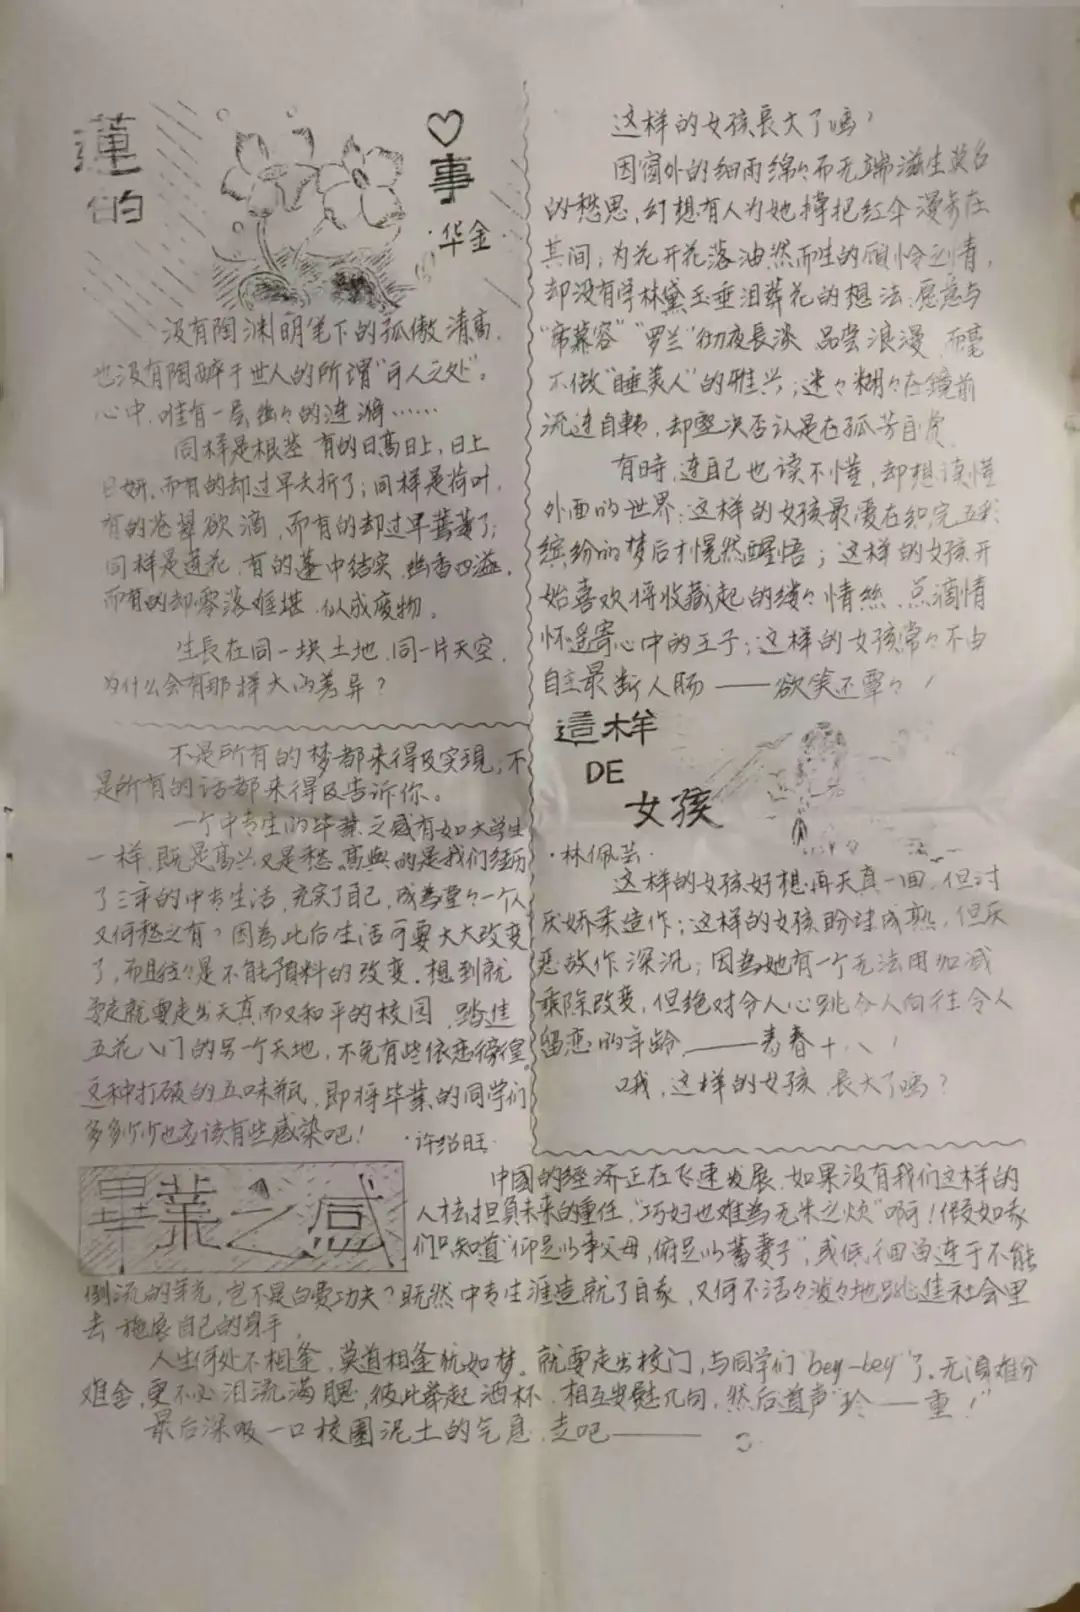 蓮的
♡事
·华金·
没有陶渊明笔下的孤傲清高,
也没有陶醉于世人的所谓“可人之处”。
心中,唯有一层幽々的涟漪……
同样是根茎,有的日高日上,日上
日妍,而有的却过早夭折了;同样是荷叶,
有的苍翠欲滴,而有的却过早蔫萎了;
同样是莲花,有的蓬中结实,幽香四溢,
而有的却零落难堪,似成废物。
生長在同一块土地,同一片天空,
为什么会有那样大的差异?
不是所有的梦都来得及实現,不
是所有的话都来得及告诉你。
一个中专生的毕業之感有如大学生
一样,既是高兴又是愁,高興的是我们经历
了三年的中专生活,充实了自己,成為堂々一个人
又何愁之有?因為此后生活可要大大改变
了,而且往々是不能預料的改变。想到就
要走就要走出天真而又和平的校园,踏進
五花八门的另一个天地,不免有些依恋徬徨。
这种打破的五味瓶,即将毕業的同学们
多多少少也应该有些感染吧!
·许绍旺·
畢業之感
中國的經济正在飞速发展,如果没有我们这样的
人去担負未来的重任,“巧妇也难為无米之烦”啊!假如我
们只知道“仰足以事父母,俯足以蓄妻子”,或低徊留连于不能
倒流的年光,岂不是白费功夫?既然中专生涯造就了自家,又何不活々泼々地跳進社会里
去施展自己的身手。
人生何处不相逢,莫道相逢犹如梦。就要走出校门,与同学们“bey-bey”了,无須难分
难舍,更不必泪流满腮,彼此举起酒杯,相互安慰几句,然后道声“珍——重!”
最后深吸一口校園泥土的气息,走吧———
这样的女孩長大了嗎?
因窗外的细雨绵々而无端滋生莫名
的愁思,幻想有人为她撑把红伞漫步在
其间;为花开花落油然而生的顾怜之情,
却没有学林黛玉垂泪葬花的想法;愿意与
“席慕容”“罗兰”彻夜長谈,品尝浪漫,而毫
不做“睡美人”的雅兴;迷々糊々在鏡前
流连自轉,却堅决否认是在孤芳自赏。
有時,连自己也读不懂,却想读懂
外面的世界;这样的女孩最爱在织完五彩
缤纷的梦后才愰然醒悟;这样的女孩开
始喜欢将收藏起的缕々情絲、点滴情
怀遥寄心中的王子;这样的女孩常々不由
自主最断人肠——欲笑还颦々!
這样
DE
女孩
·林佩芸·
这样的女孩好想再天真一回,但讨
厌娇柔造作;这样的女孩盼望成熟,但厌
恶故作深沉;因為她有一个无法用加减
乘除改变,但绝对令人心跳令人向往令人
留恋的年龄,——青春十八!
哦,这样的女孩,長大了嗎?